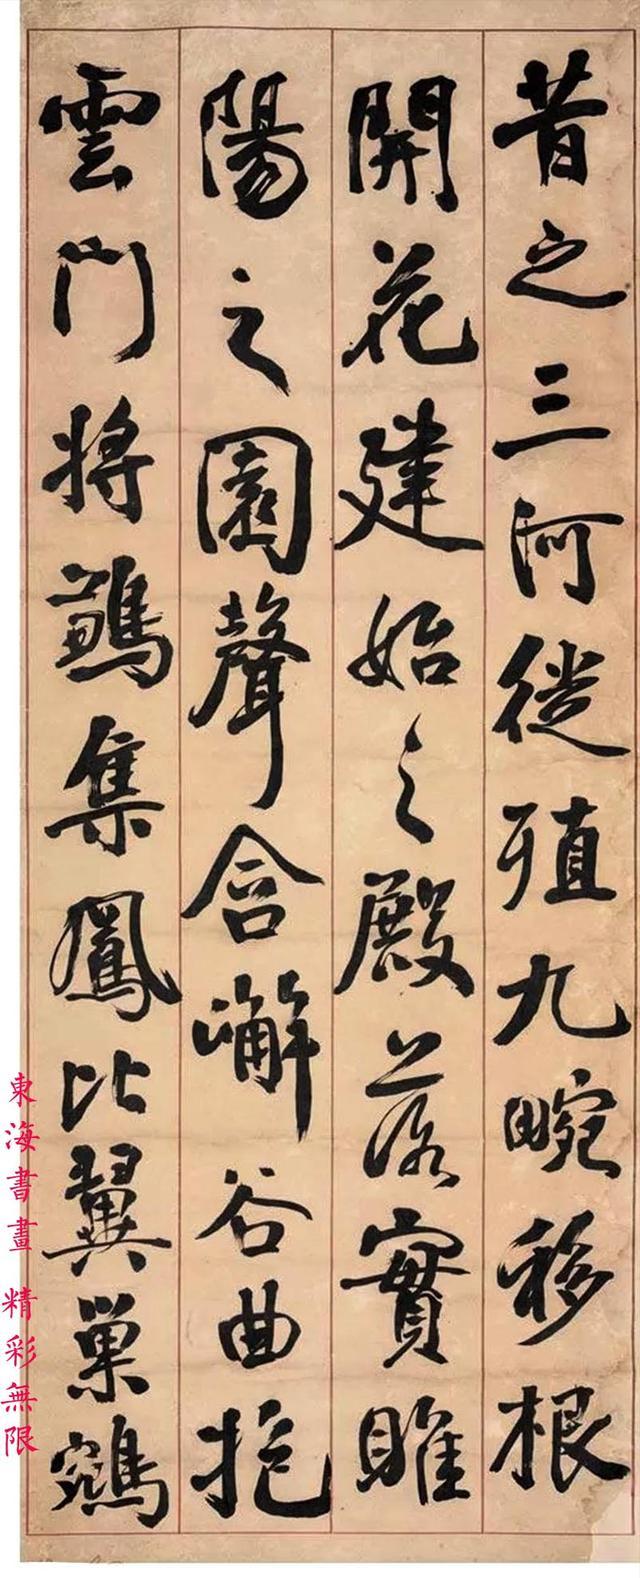 昔之三河徙殖九畹移根
開花建始之殿落實睢
陽之園聲含嶰谷曲抱
雲門將鶵集鳳比翼巢鵷
東海書畫 精彩無限